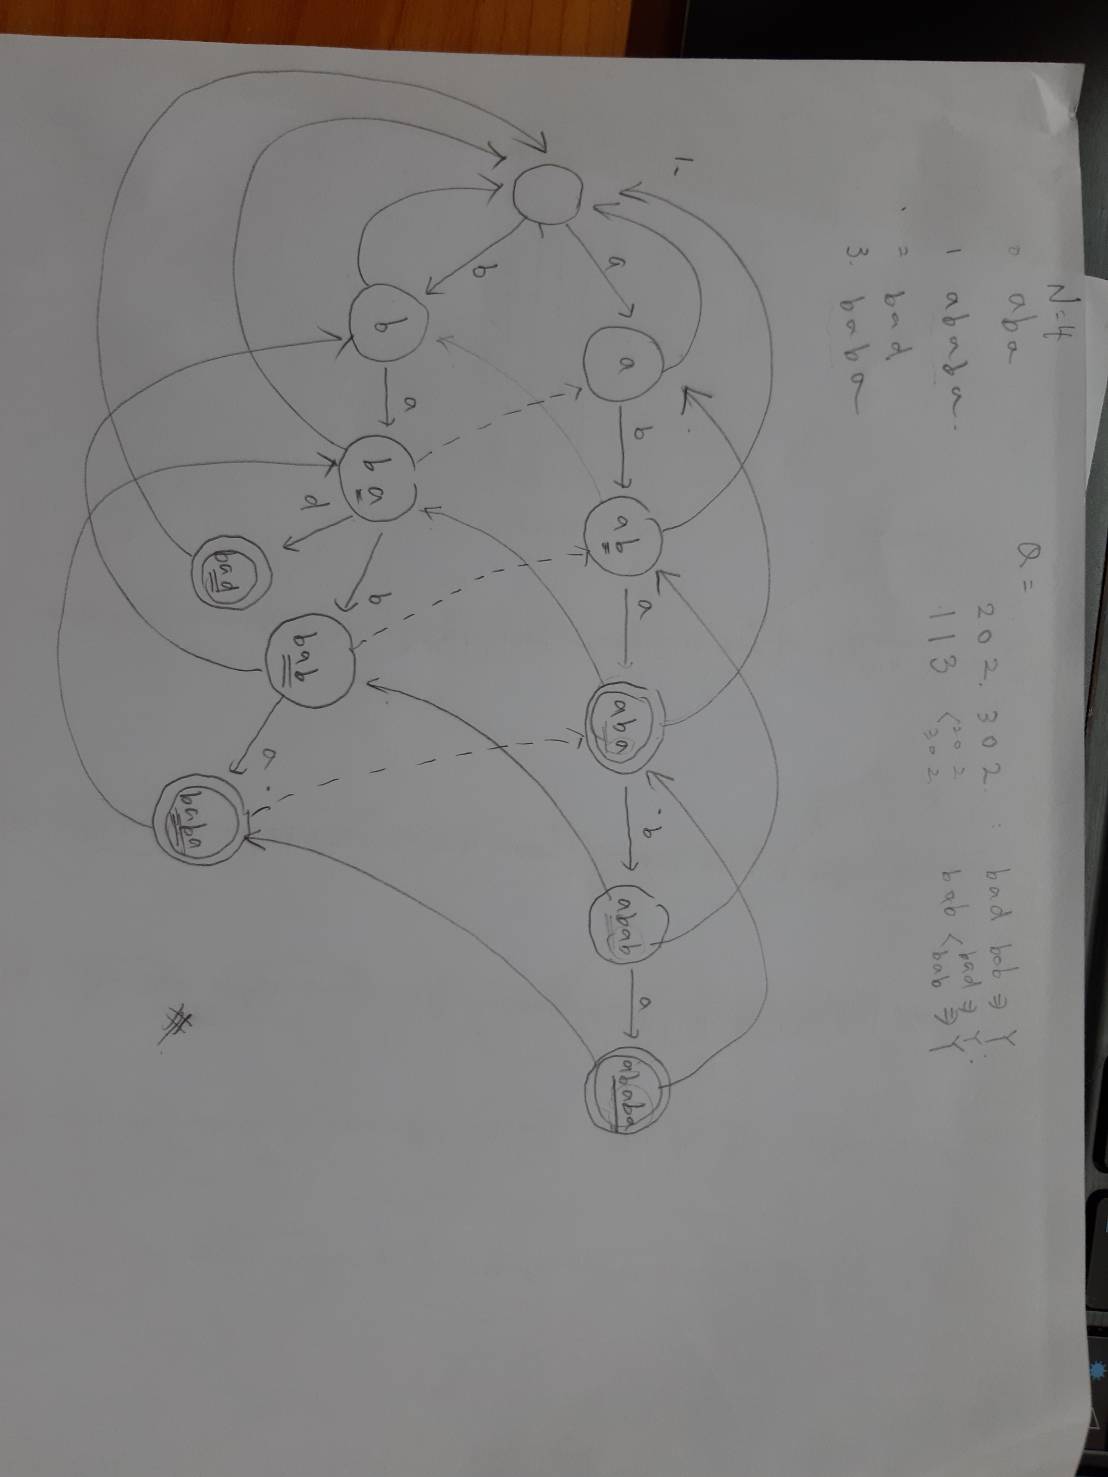 N=4
0 aba
1 ababa.
= bad
3. baba
Q =
202. 302. : bad bab ⇒ Y
113 <202 bab <bad ⇒ Y.
302. bab ⇒ Y
1.
a
a
b
ab
a
aba
b
abab
a
ababa
b
b
a
ba
d
bad
b
bab
a
baba